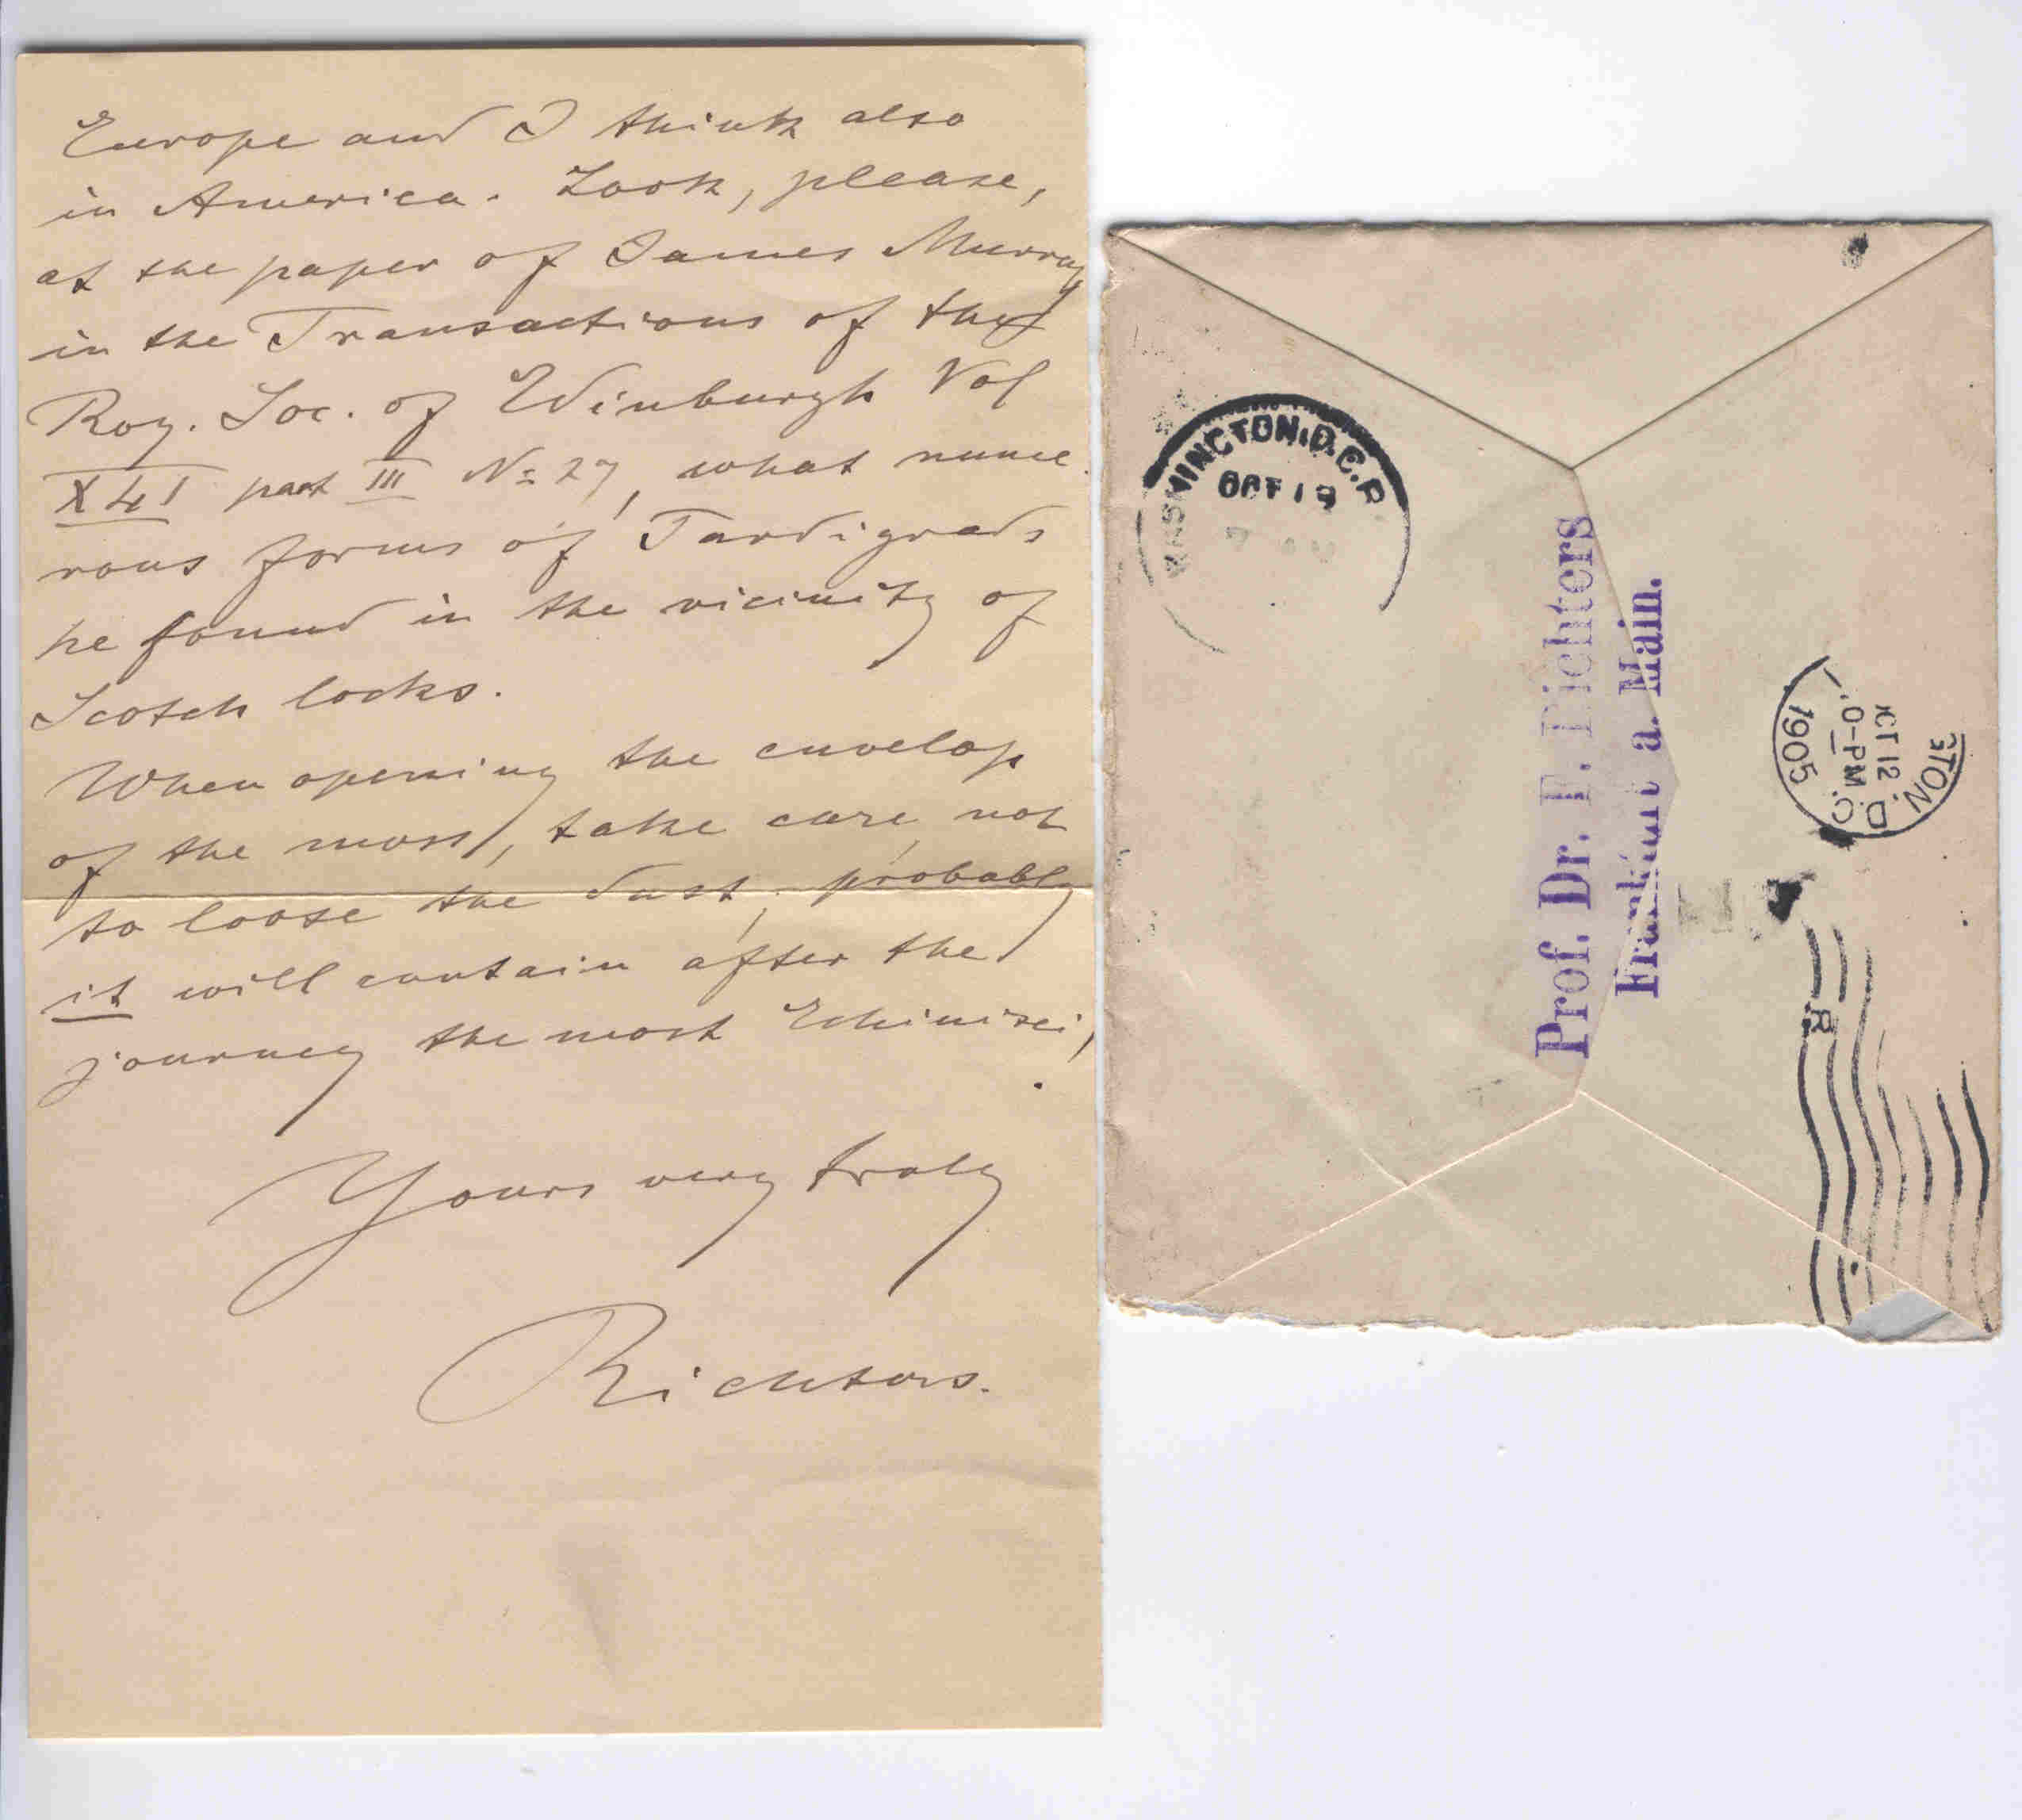 Europe and I think also
in America. Look, please,
at the paper of James Murray
in the Transactions of the
Roy. Soc. of Edinburgh Vol
XLI part III No 27, what nume
rous forms of Tardigrads
he found in the vicinity of
Scotch locks.
When opening the envelop
of the moss, take care, not
to loose the dust; probably
it will contain after the
journey the most Echinisci,
Yours very truly
Richters.
WASHINGTON, D.C.
OCT 1
Prof. Dr. F. Richters
Frankfurt a. Main.
GTON, D.C.
OCT 12
0-PM
1905